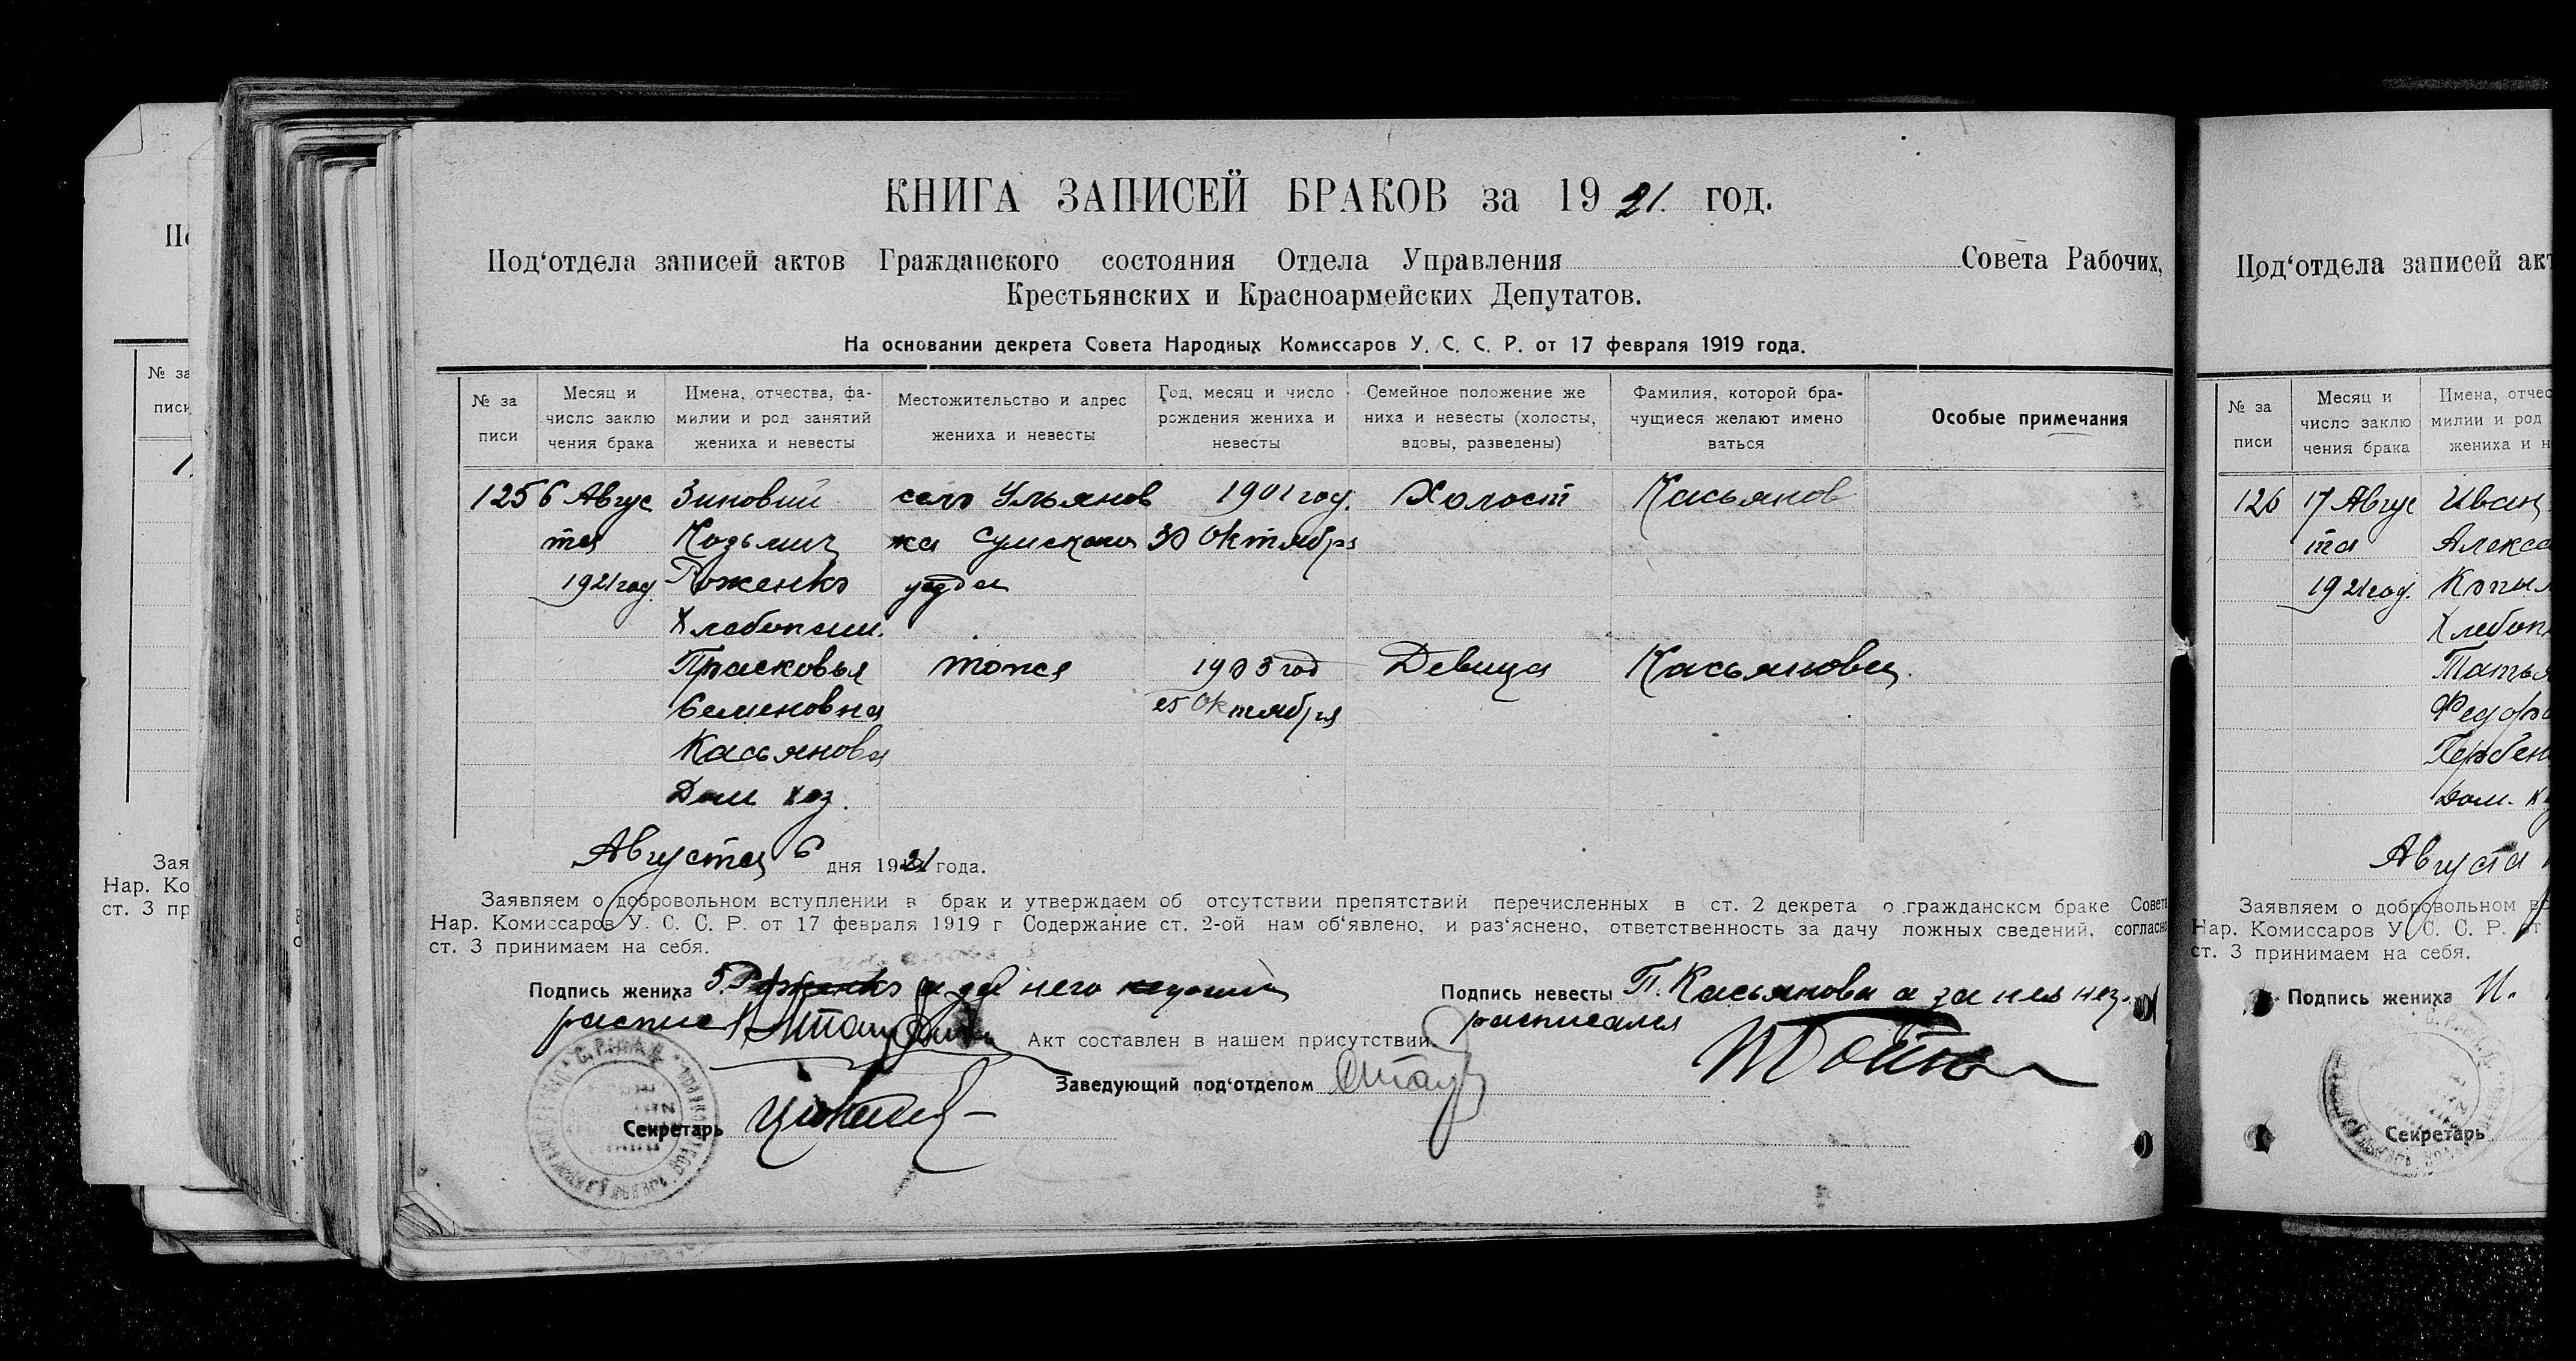 КНИГА ЗАПИСЕЙ БРАКОВ за 1921. год.
Под‘отдела записей актов Гражданского состояния Отдела Управления Совета Рабочих,
Крестьянских и Красноармейских Депутатов.
На основании декрета Совета Народных Комиссаров У. С. С. Р. от 17 февраля 1919 года.
№ за
писи
Месяц и
число заклю
чения брака
Имена, отчества, фа-
милии и род занятий
жениха и невесты
Местожительство и адрес
жениха и невесты
Год, месяц и число
рождения жениха и
невесты
Семейное положение же
ниха и невесты (холосты,
вдовы, разведены)
Фамилия, которой бра-
чущиеся желают имено
ваться
Особые примечания
125 6 Авгус Зиновий село Ульянов 1901 год. Холост Касьянов
та Козьмич ка Сумского 30 Октября
1921 год. Роженко уезда
Хлебопаш.
Прасковья тоже 1903 год Девица Касьянова
Семеновна 25 Октября
Касьянова
Дом хоз.
Августа 6 дня 1921 года.
Заявляем о добровольном вступлении в брак и утверждаем об отсутствии препятствий перечисленных в ст. 2 декрета о гражданском браке Совета
Нар. Комиссаров У. С. С. Р. от 17 февраля 1919 г Содержание ст. 2-ой нам об‘явлено, и раз‘яснено, ответственность за дачу ложных сведений, согласно
ст. 3 принимаем на себя.
Подпись жениха Роженко а за него
Подпись невесты П. Касьянова а за нея нег.
распис
расписался
Акт составлен в нашем присутствии.
Заведующий под‘отделом
Секретарь
Под‘отдела записей акт
№ за
писи
Месяц и
число заклю
чения брака
Имена, отчес
милии и род
жениха и н
126 17 Авгус Иван
та Алекса
1921 год. Копыл
Хлебоп
Татья
Федоро
Дом. х
Августа
Заявляем о добровольном в
Нар. Комиссаров У. С. С. Р. от
ст. 3 принимаем на себя.
Подпись жениха И.
Секретарь
№ за
писи
Зая
Нар. Ко
ст. 3 пр